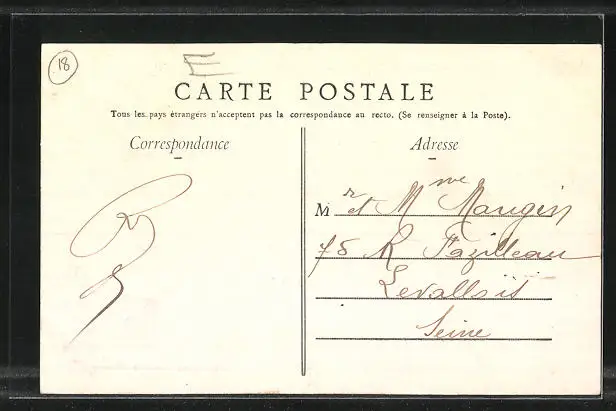 18
E
CARTE POSTALE
Tous les pays étrangers n'acceptent pas la correspondance au recto. (Se renseigner à la Poste).
Correspondance
Adresse
Mr et Mme Maugin
75 R Fazilleau
Levallois
Seine